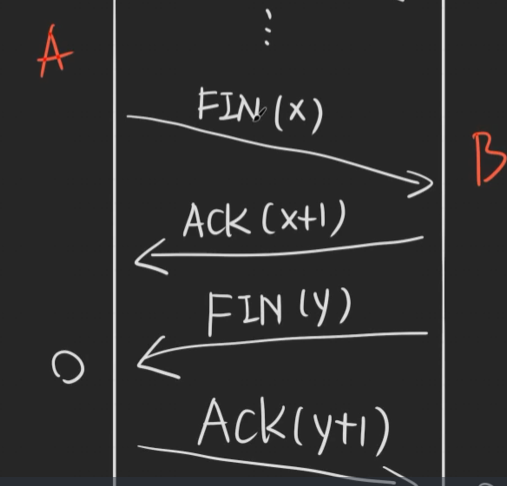 A
FIN(x)
B
ACK(x+1)
FIN(y)
O
Ack(y+1)